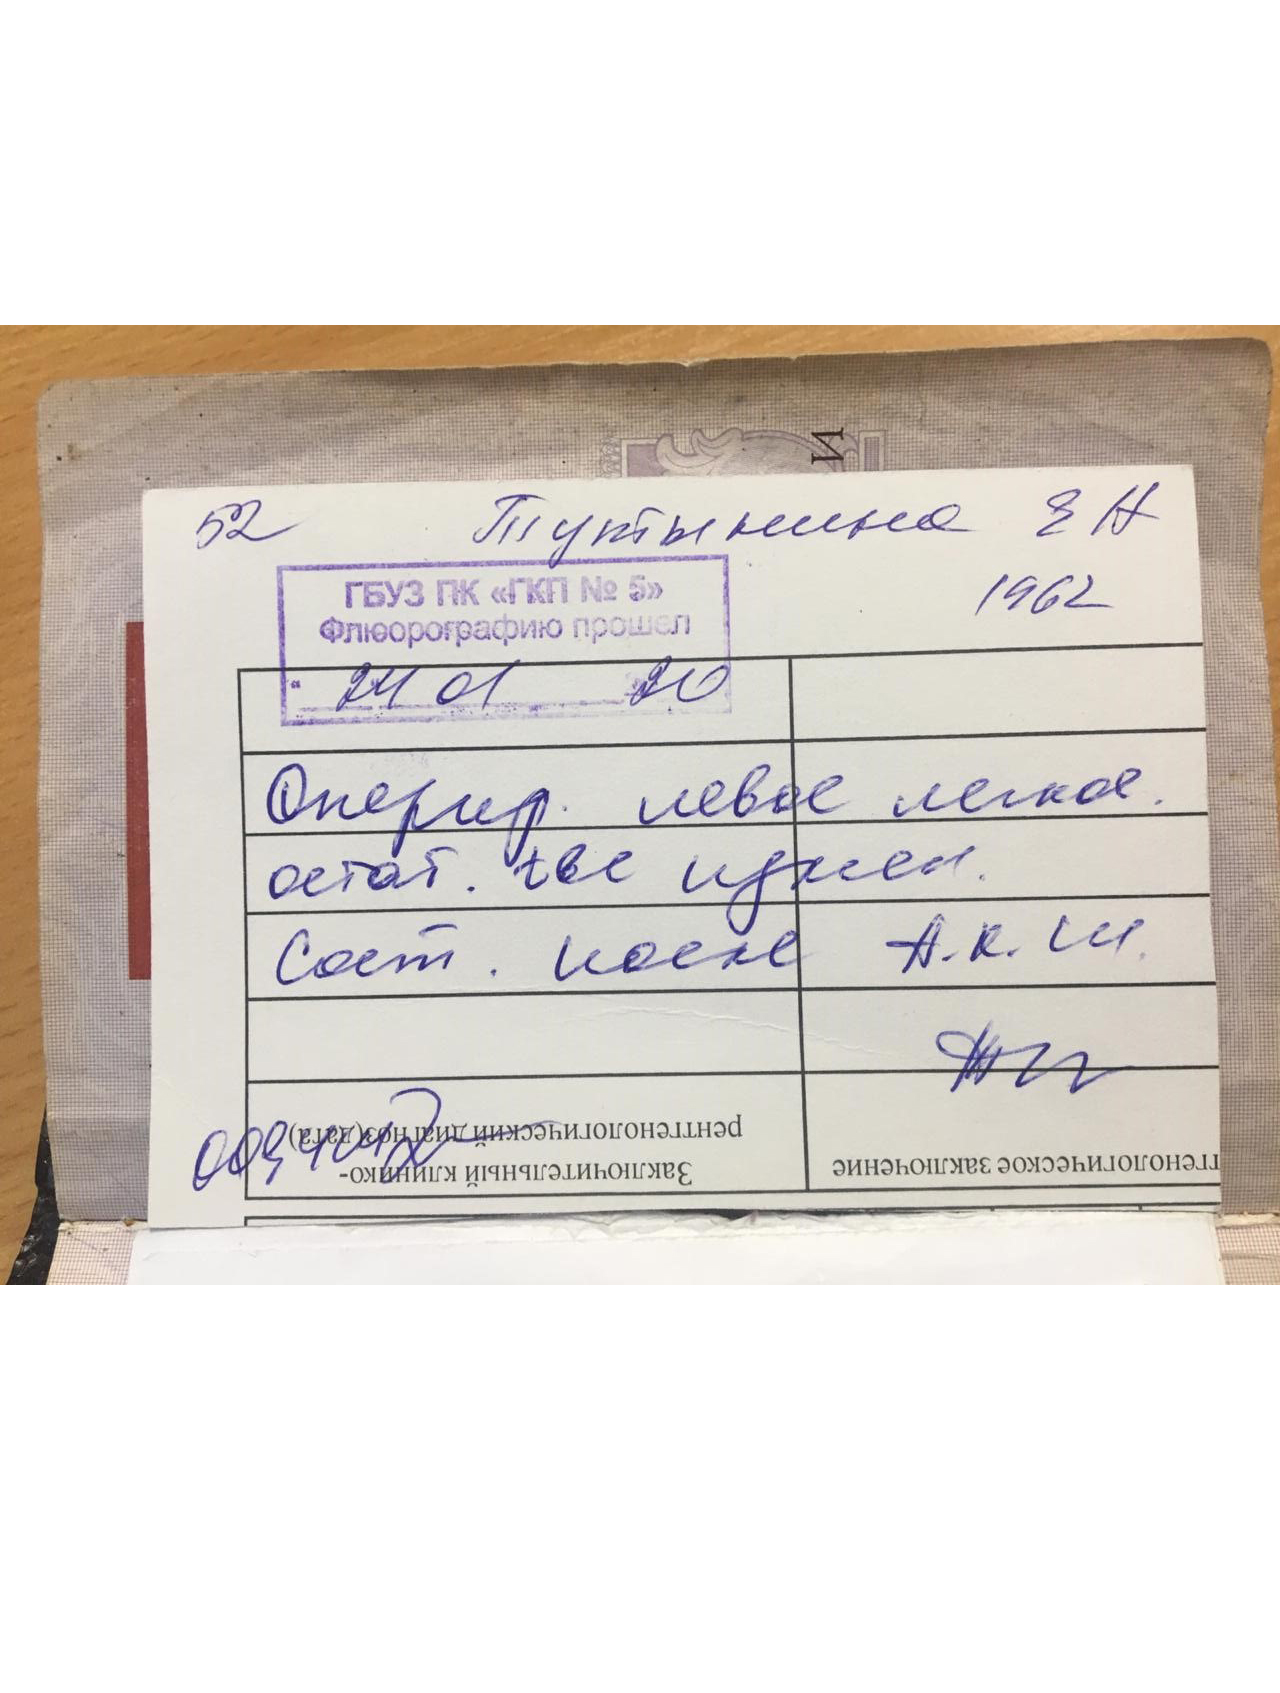 52 Туктынина Е Н
1962
ГБУЗ ПК «ГКП № 5»
Флюорографию прошел
" 24 01 20
Оперир. левое легкое.
остат. изм.
Сост. после А.К.Ш.
рентгенологический диагноз(дата)
Заключительный клинико-
тгенологическое заключение
И